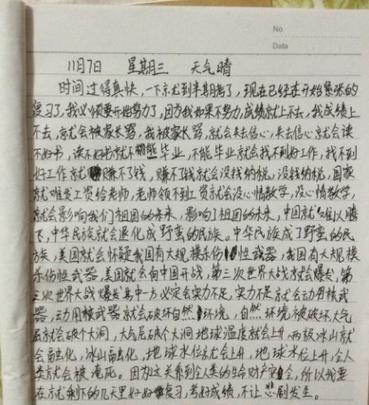 No
Date
11月7日 星期三 天气晴
时间过得真快,一下就到半期考了,现在已经在开始紧张的
复习了,我必须要开始努力了,因为我如果不努力,成绩就上不去,我成绩上
不去,就会被家长骂,我被家长骂,就会失去信心,失去信心就会读
不好书,读不好书就不能毕业,不能毕业就会找不到好工作,找不到
好工作就赚不了钱,赚不了钱就会没钱纳税,没钱纳税,国家
就难发工资给老师,老师领不到工资就会没心情教学,没心情教学,
就会影响我们祖国的未来,影响了祖国的未来,中国就难以腾
飞,中华民族就会退化成野蛮的民族。中华民族成了野蛮的民
族,美国就会怀疑我国有大规模杀伤性武器,我国有大规模
杀伤性武器,美国就会向中国开战,第三次世界大战就会爆发,第
三次世界大战爆发其中一方必定会实力不足,实力不足就会动用核武
器,动用核武器就会破坏自然环境,自然环境被破坏大气
层就会破个大洞,大气层破个大洞地球温度就会上升,两极冰山就
会融化,冰山融化,地球水位就会上升,地球水位上升,全人
类就会被淹死。因为这关系到全人类的生命财产安全,所以我要
在就剩下的几天里好好复习,考好成绩,不让悲剧发生。